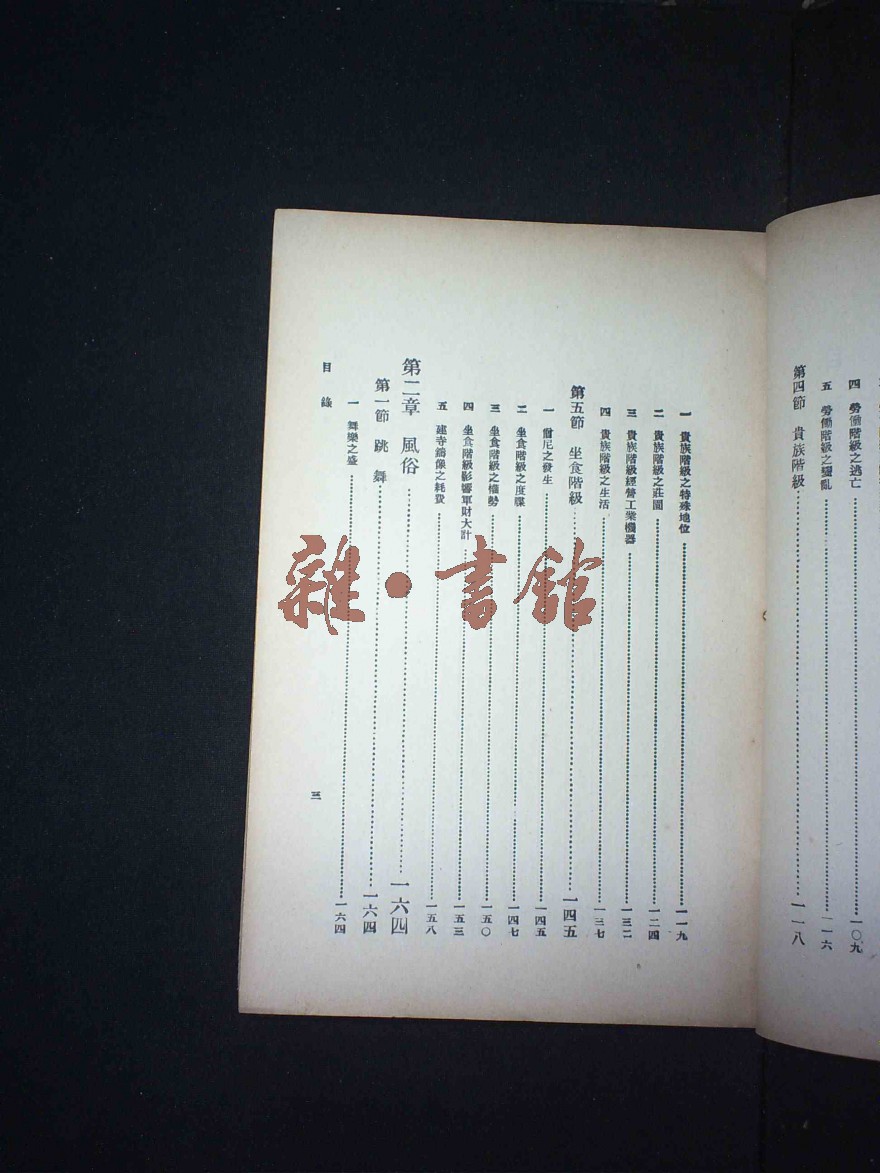 四　勞働階級之逃亡……一〇九
五　勞働階級之騷亂……一一六
第四節　貴族階級……一一八
一　貴族階級之特殊地位……一一九
二　貴族階級之莊園……一二四
三　貴族階級經營工業機器……一三二
四　貴族階級之生活……一三七
第五節　坐食階級……一四五
一　僧尼之發生……一四五
二　坐食階級之度牒……一四七
三　坐食階級之權勢……一五〇
四　坐食階級影響軍財大計……一五三
五　建寺鑄像之耗費……一五八
第二章　風俗……一六四
第一節　跳舞……一六四
一　舞樂之盛……一六四
目錄
三
雜·書館